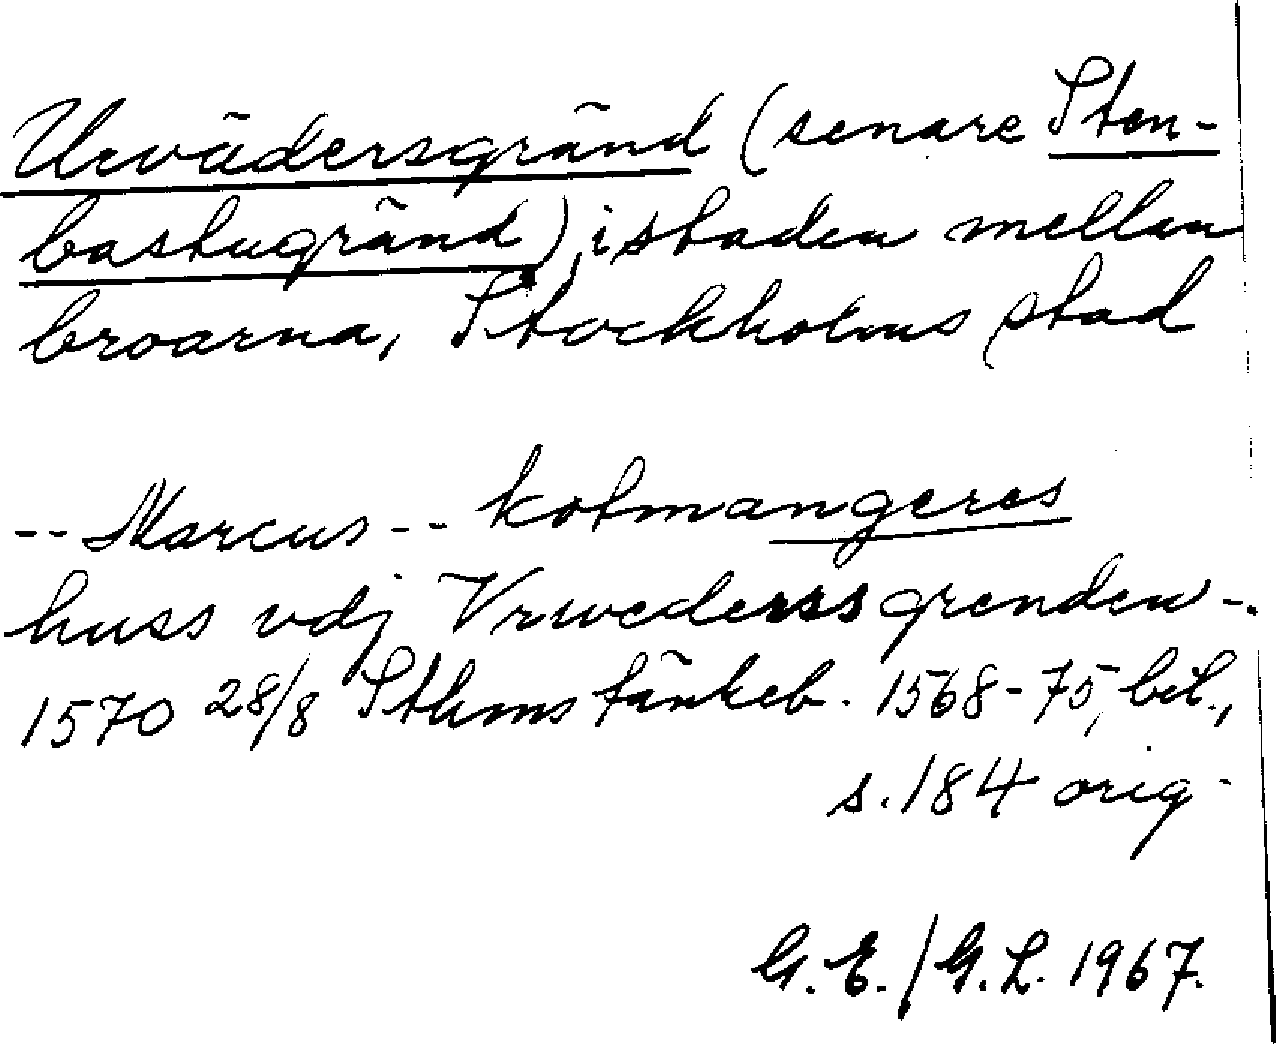 Urvädersgränd (senare Sten-
bastugränd), i staden mellan
broarna, Stockholms stad
-- Marcus -- kotmangeres
huss vdj Vrwederssgrenden -.
1570 28/8 Sthms tänkeb. 1568-75, bil.,
s. 184 orig.
G.E./G.L. 1967.